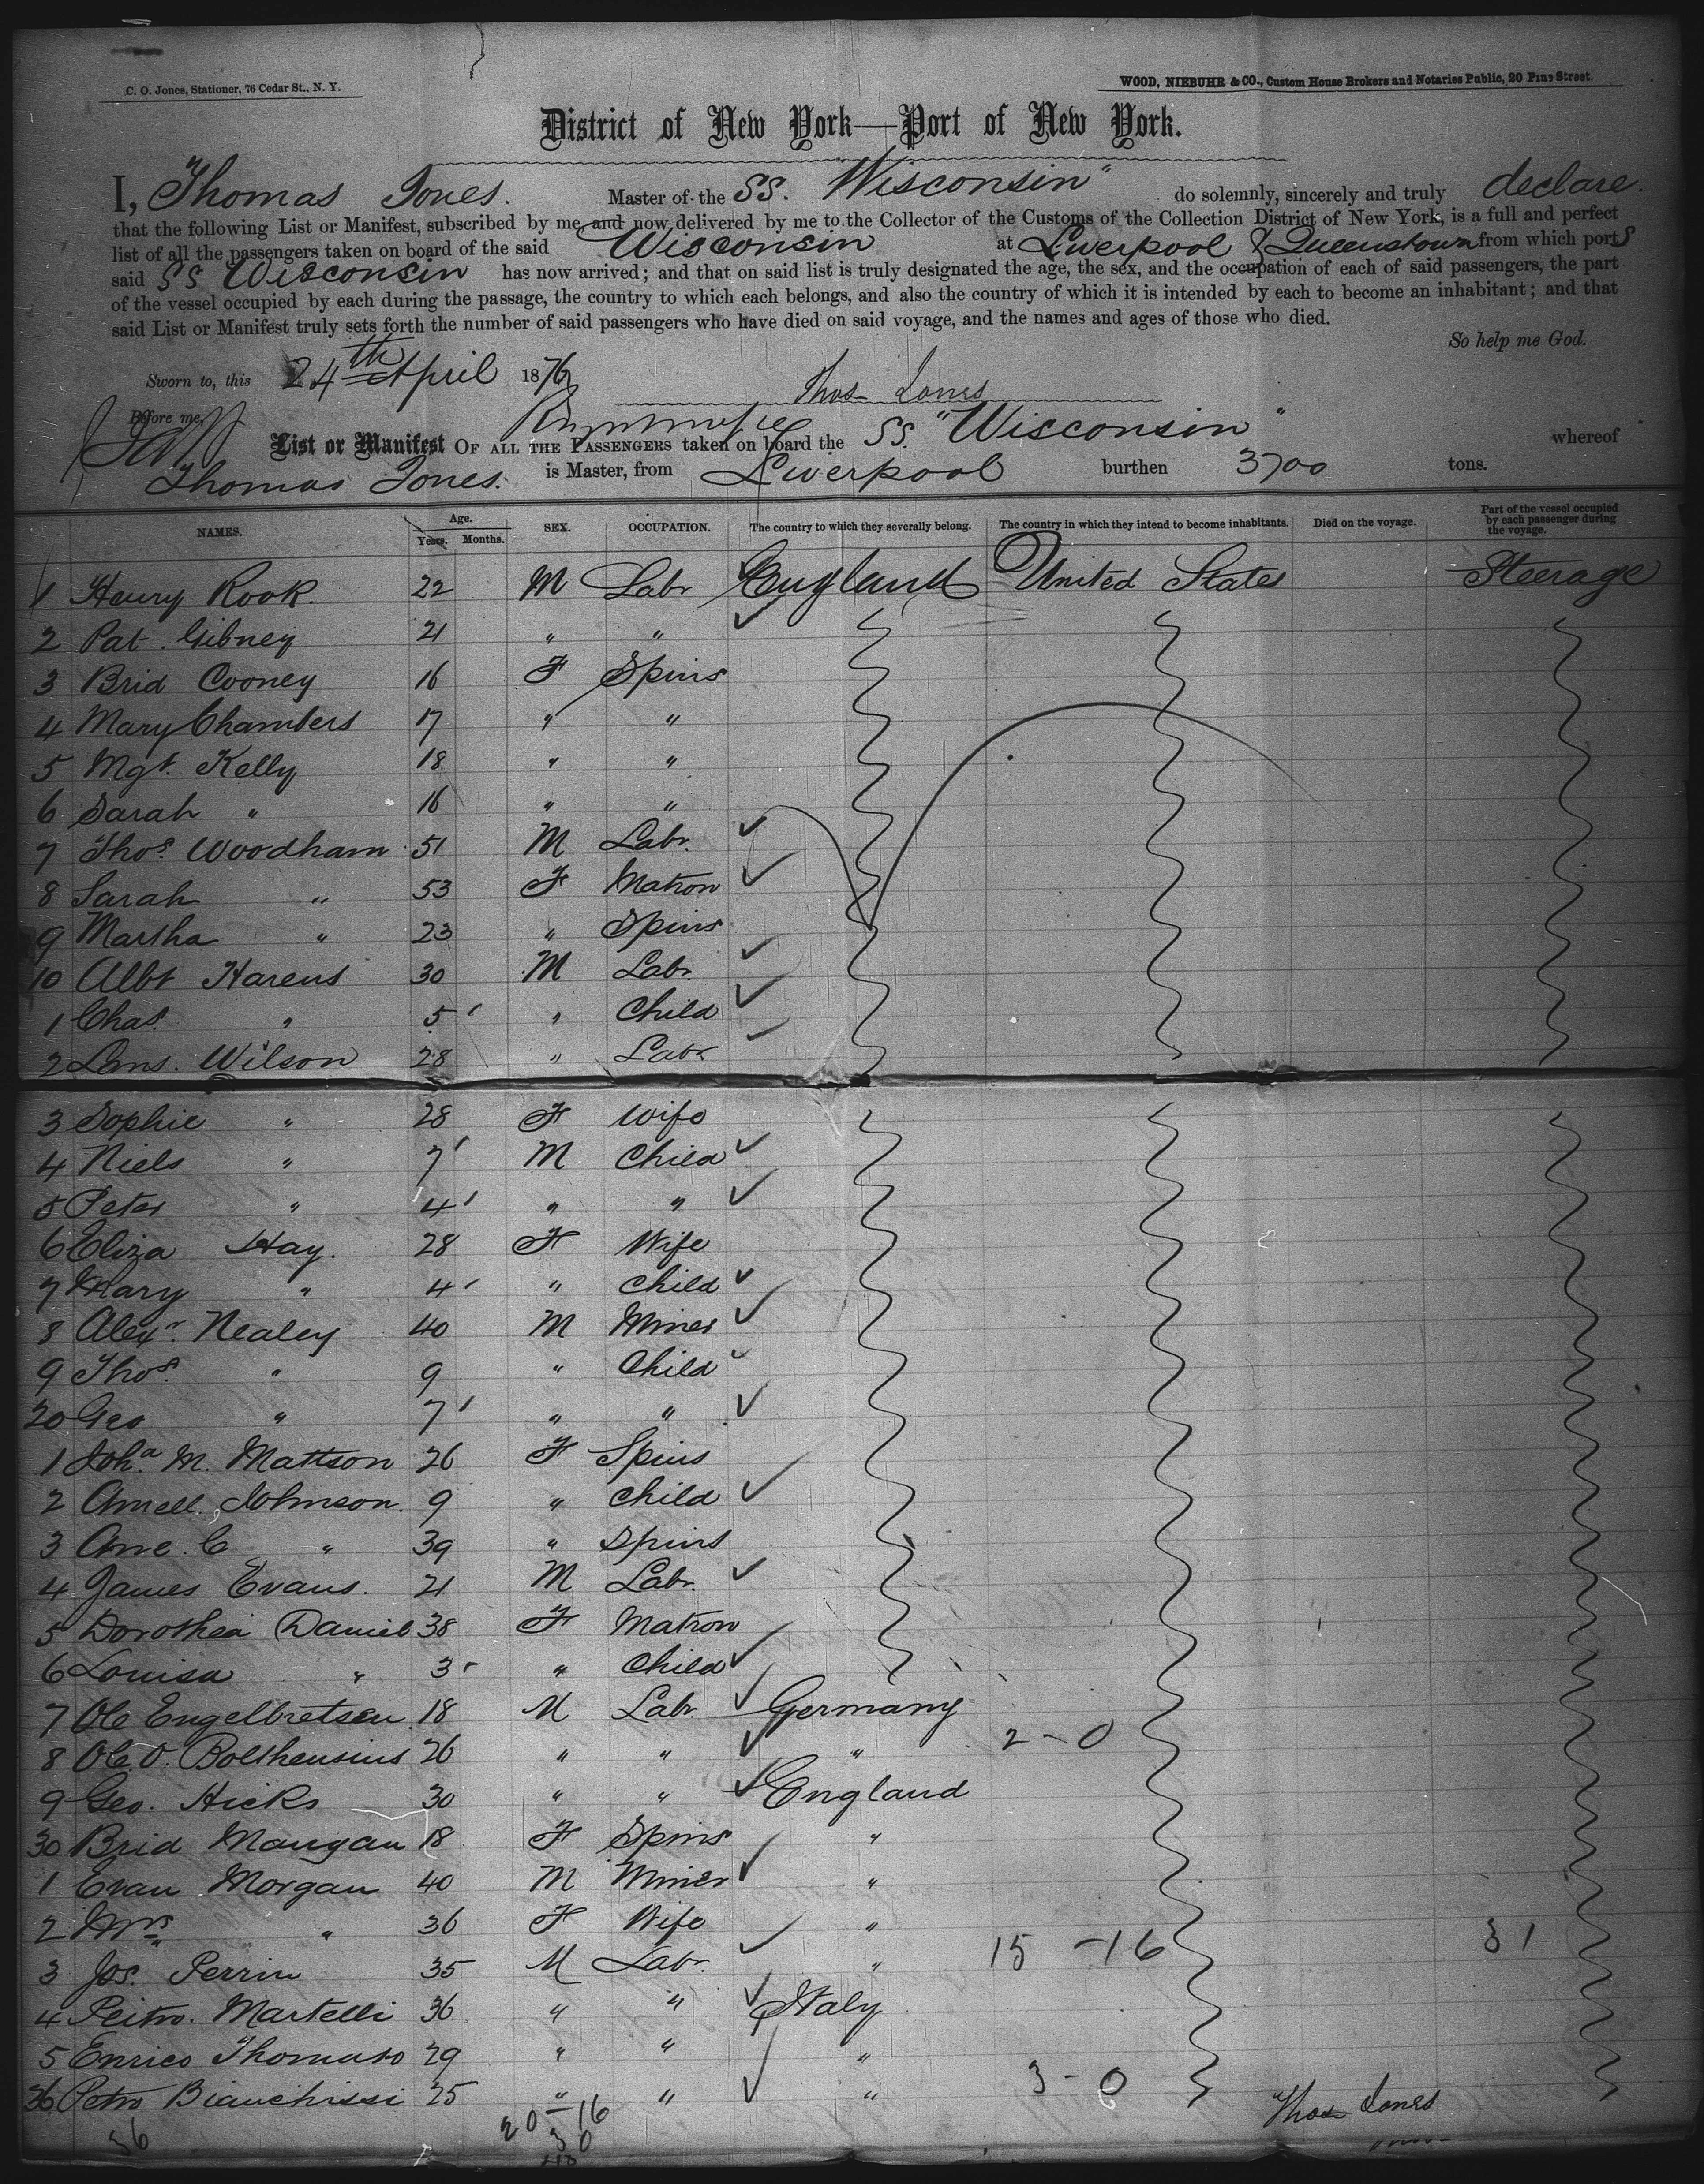 C. O. Jones, Stationer, 76 Cedar St., N. Y.
WOOD, NIEBUHR & CO., Custom House Brokers and Notaries Public, 20 Pine Street.
District of New York—Port of New York.
I, Thomas Jones. Master of the SS. "Wisconsin" do solemnly, sincerely and truly declare.
that the following List or Manifest, subscribed by me, and now delivered by me to the Collector of the Customs of the Collection District of New York, is a full and perfect
list of all the passengers taken on board of the said Wisconsin at Liverpool & Queenstown from which ports
said SS Wisconsin has now arrived; and that on said list is truly designated the age, the sex, and the occupation of each of said passengers, the part
of the vessel occupied by each during the passage, the country to which each belongs, and also the country of which it is intended by each to become an inhabitant; and that
said List or Manifest truly sets forth the number of said passengers who have died on said voyage, and the names and ages of those who died.
So help me God.
Sworn to, this 24th April 1876
Thos Jones
Before me,
List or Manifest OF ALL THE PASSENGERS taken on board the SS. "Wisconsin" whereof
Thomas Jones. is Master, from Liverpool burthen 3700 tons.
NAMES. Age. Years. Months. SEX. OCCUPATION. The country to which they severally belong. The country in which they intend to become inhabitants. Died on the voyage. Part of the vessel occupied by each passenger during the voyage.
1 Henry Rook. 22 M Labr England United States Steerage
2 Pat. Gibney 21 " "
3 Brid Cooney 16 F Spins
4 Mary Chambers 17 " "
5 Mgt. Kelly 18 " "
6 Sarah " 16 " "
7 Thos. Woodham 51 M Labr.
8 Sarah " 53 F Matron
9 Martha " 23 " Spins
10 Albt Harens 30 M Labr.
1 Chas. " 5 " Child
2 Lans. Wilson 28 " Labr.
3 Sophie " 28 F Wife
4 Niels " 7 M Child
5 Peter " 4 " "
6 Eliza Hay. 28 F Wife
7 Mary " 4 " Child
8 Alexr. Nealey 40 M Miner
9 Thos. " 9 " Child
20 Geo " 7 " "
1 Joha. M. Mattson 26 F Spins
2 Amell. Johnson. 9 " Child
3 Ane. C " 39 " Spins
4 James Evans. 21 M Labr.
5 Dorothea Daniel 38 F Matron
6 Louisa " 3 " Child
7 Ole Engelbretsen 18 M Labr Germany
8 Ole O. Bolthensius 26 " " " 2-0
9 Geo. Hicks 30 " " England
30 Brid Mangan 18 F Spins "
1 Evan Morgan 40 M Miner "
2 Mrs " 36 F Wife "
15-16 31
3 Jos. Perrin 35 M Labr. "
4 Peitro. Martelli 36 " " Italy
5 Enrico Thomaso 29 " " "
36 Petro Bianchissi 25 " " " 3-0
Thos Jones
20-16
36 30